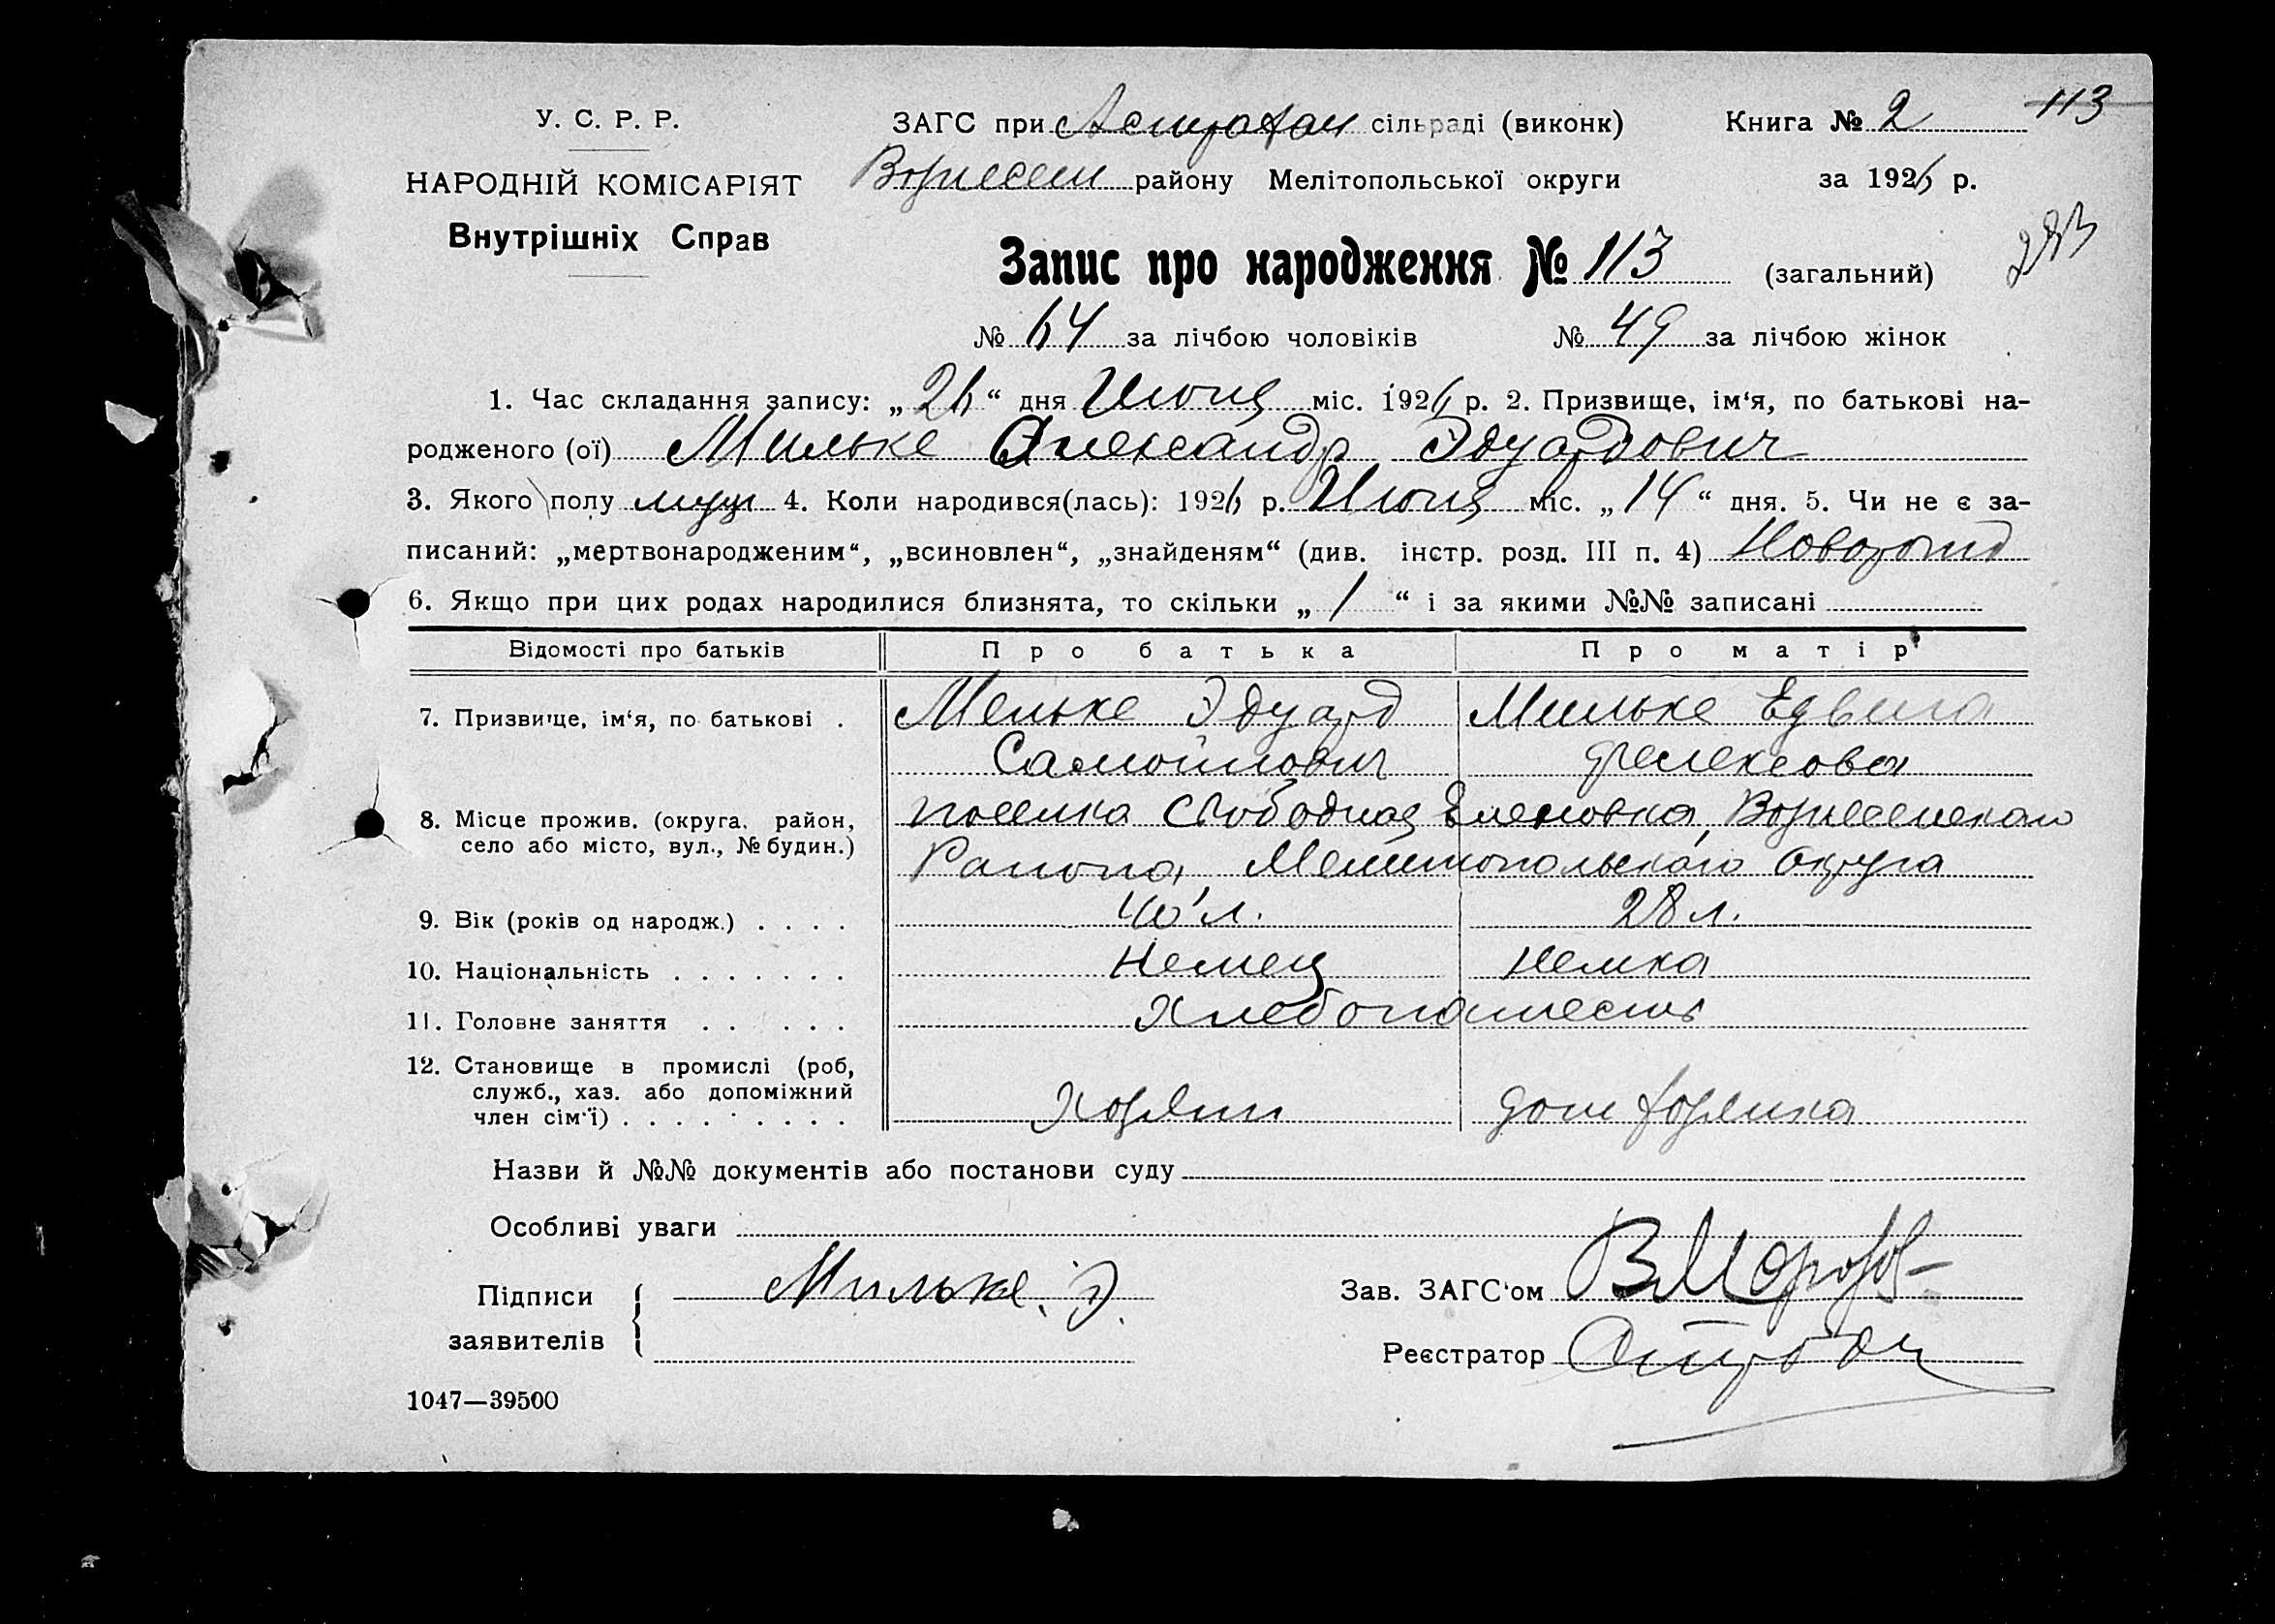 У. С. Р. Р.
НАРОДНІЙ КОМІСАРІЯТ
Внутрішніх Справ
ЗАГС при Астрахан сільраді (виконк) Книга № 2 113
района району Мелітопольської округи за 1926 р.
Запис про народження № 113 (загальний)
№ 64 за лічбою чоловіків № 49 за лічбою жінок
1. Час складання запису: „26“ дня Июня міс. 1926 р. 2. Призвище, ім‘я, по батькові на-
родженого (ої) Мильке Александр Эдуардович
3. Якого полу муж 4. Коли народився(лась): 1926 р. Июня міс. „14“ дня. 5. Чи не є за-
писаний: „мертвонародженим“, „всиновлен“, „знайденям“ (див. інстр. розд. III п. 4)Новорожд
6. Якщо при цих родах народилися близнята, то скільки „1“ і за якими №№ записані
Відомості про батьків Про батька Про матір
7. Призвище, ім‘я, по батькові . Мельке Эдуард Мильке Едвига
Самойлович Фелексовна
8. Місце прожив. (округа, район, село або місто, вул., № будин.) поселка Свободная Еленовка, Вознесенского
Района, Мелитопольского Округа
9. Вік (років од народж.) . . . . 40 л. 28 л.
10. Національність . . . . . . . Немец Немка
11. Головне заняття . . . . . Хлебопашество
12. Становище в промислі (роб,
служб., хаз. або допоміжний
член сім‘ї) . . . . . . . . Хозяин дом хозяика
Назви й №№ документів або постанови суду
Особливі уваги
Підписи заявителів Мильке. Э. Зав. ЗАГС‘ом ВМорозов
Реєстратор
1047—39500